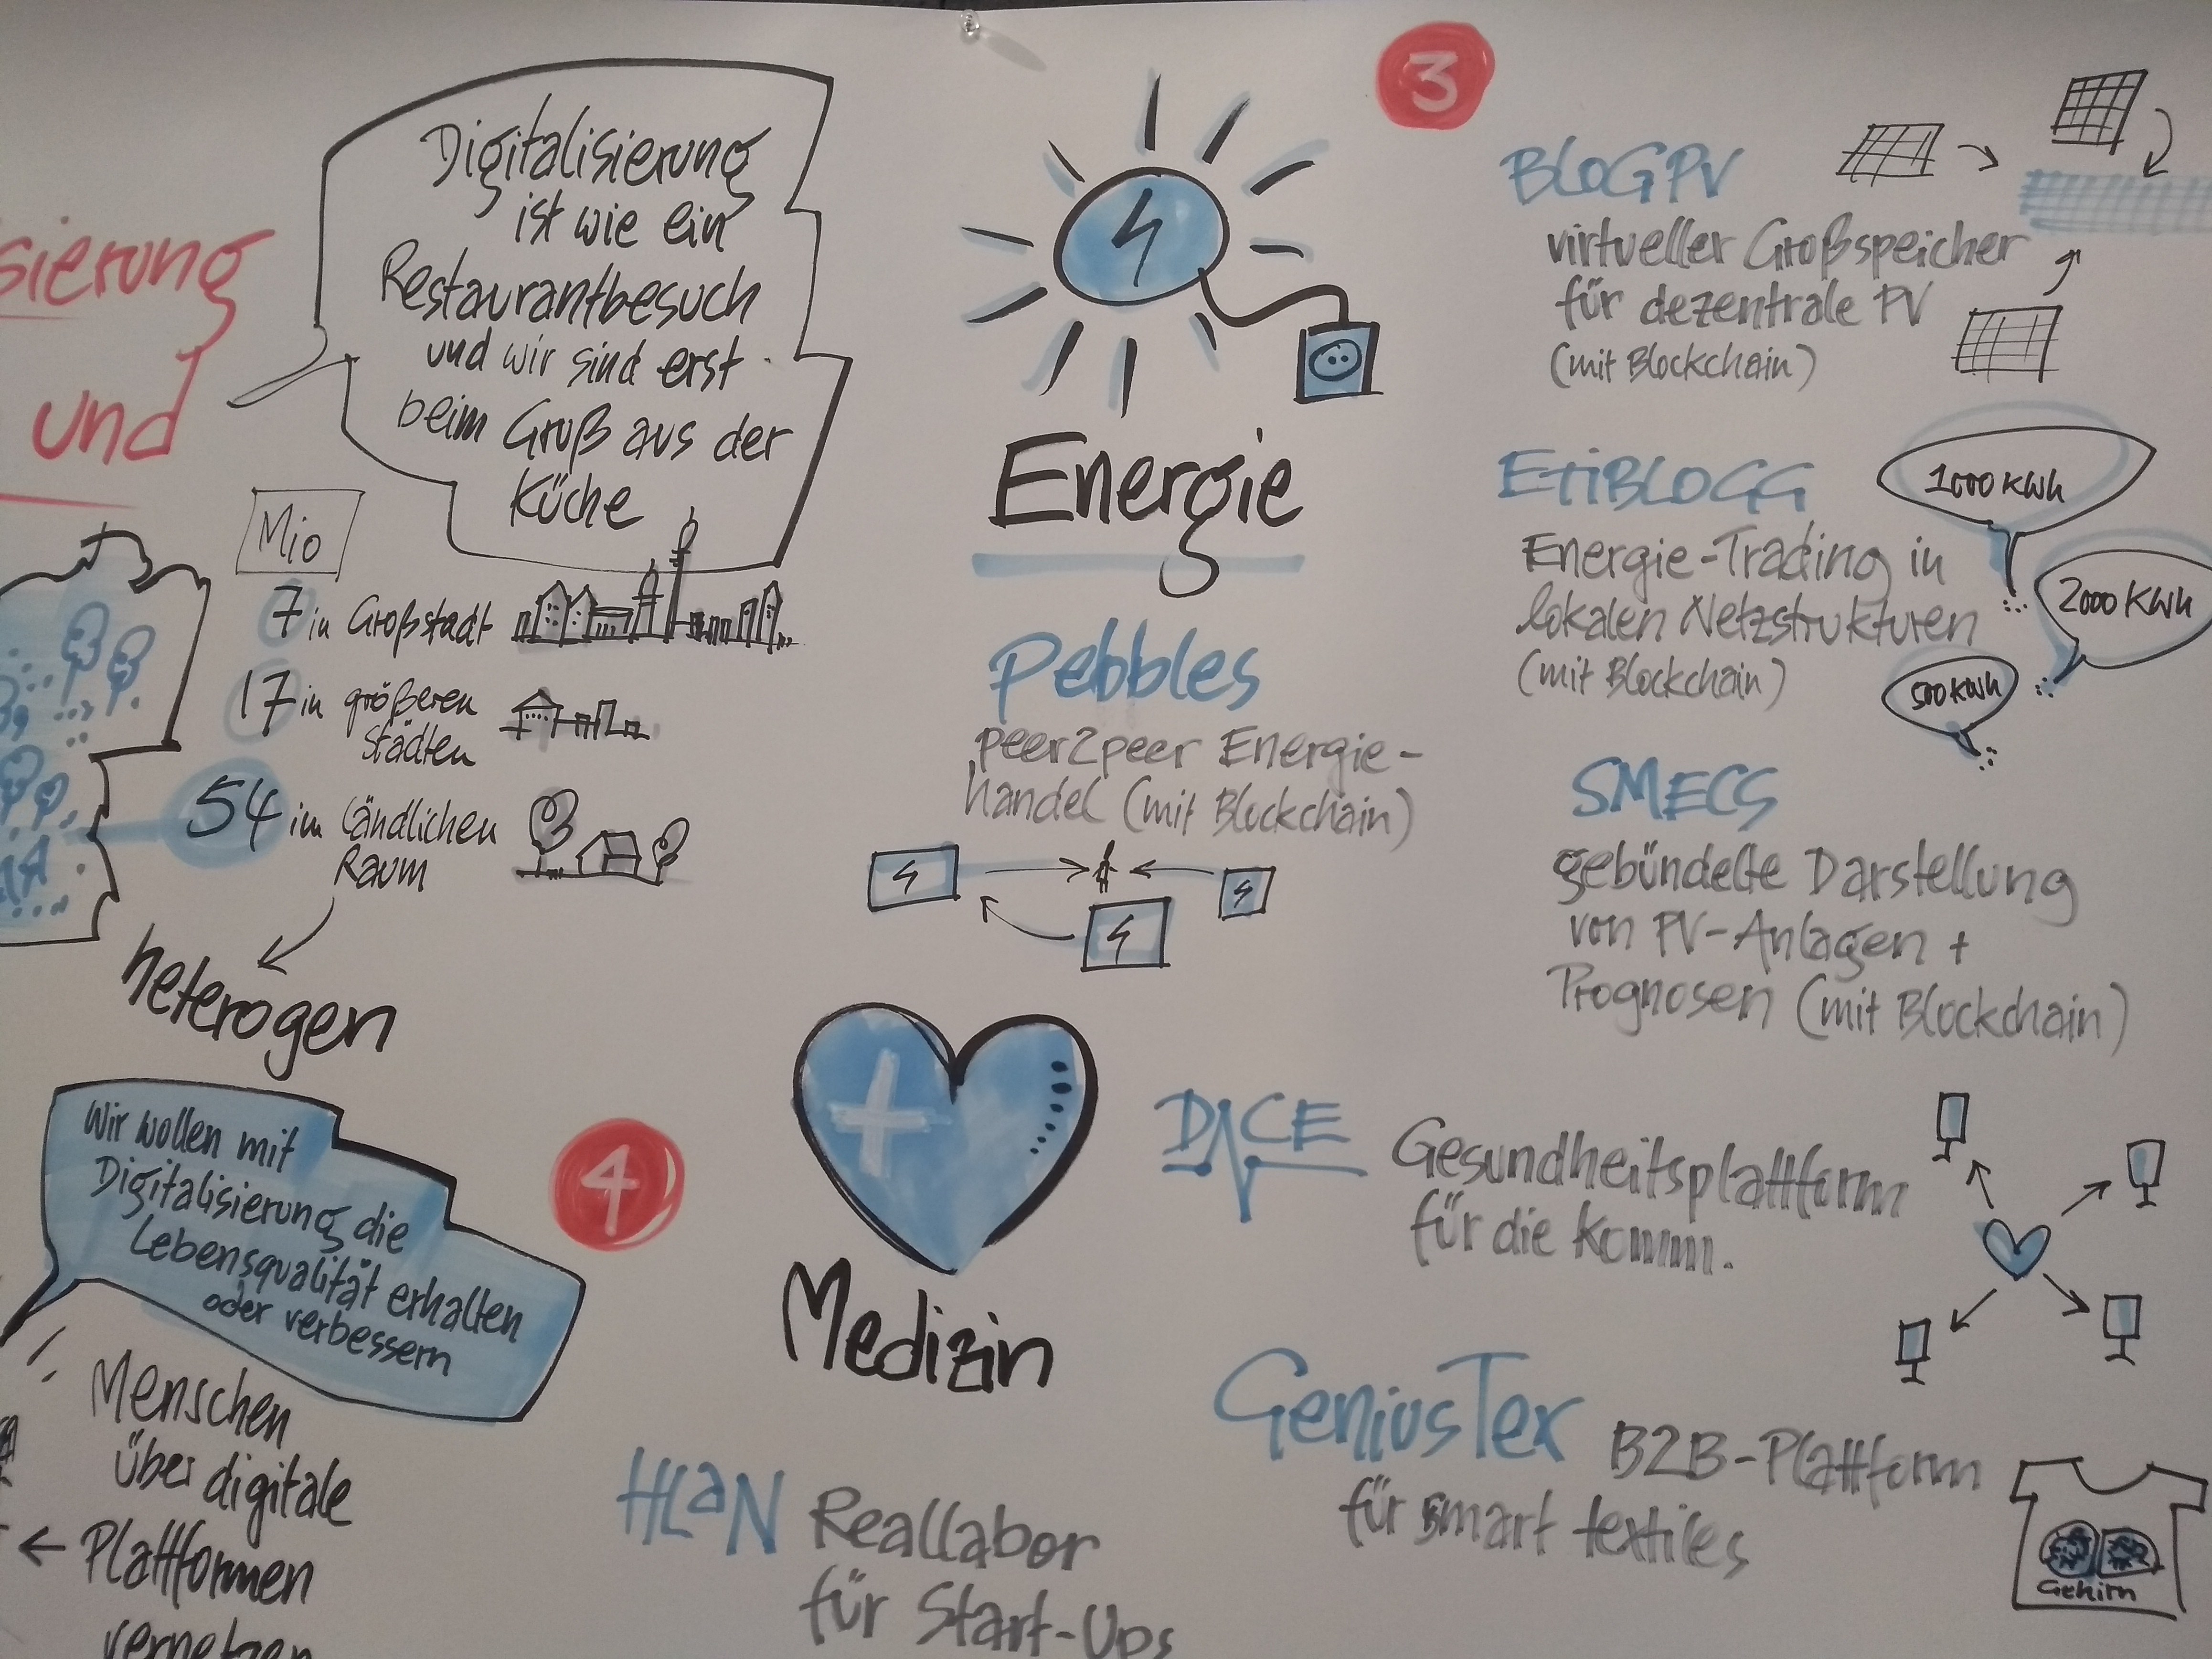 Digitalisierung
ist wie ein
Restaurantbesuch
und wir sind erst
beim Gruß aus der
Küche
sierung
und
Mio
7 in Großstadt
17 in größeren
Städten
54 im ländlichen
Raum
heterogen
Wir wollen mit
Digitalisierung die
Lebensqualität erhalten
oder verbessern
Menschen
über digitale
← Plattformen
vernetzen
3
Energie
Pebbles
peer2peer Energie-
handel (mit Blockchain)
BLOGPV
virtueller Großspeicher
für dezentrale PV
(mit Blockchain)
ETIBLOGG
Energie-Trading in
lokalen Netzstrukturen
(mit Blockchain)
1000 KWh
2000 KWh
500 KWh
SMECS
gebündelte Darstellung
von PV-Anlagen +
Prognosen (mit Blockchain)
4
Medizin
DACE
Gesundheitsplattform
für die Komm.
GeniusTex B2B-Plattform
für smart textiles
Gehirn
HLaN Reallabor
für Start-Ups